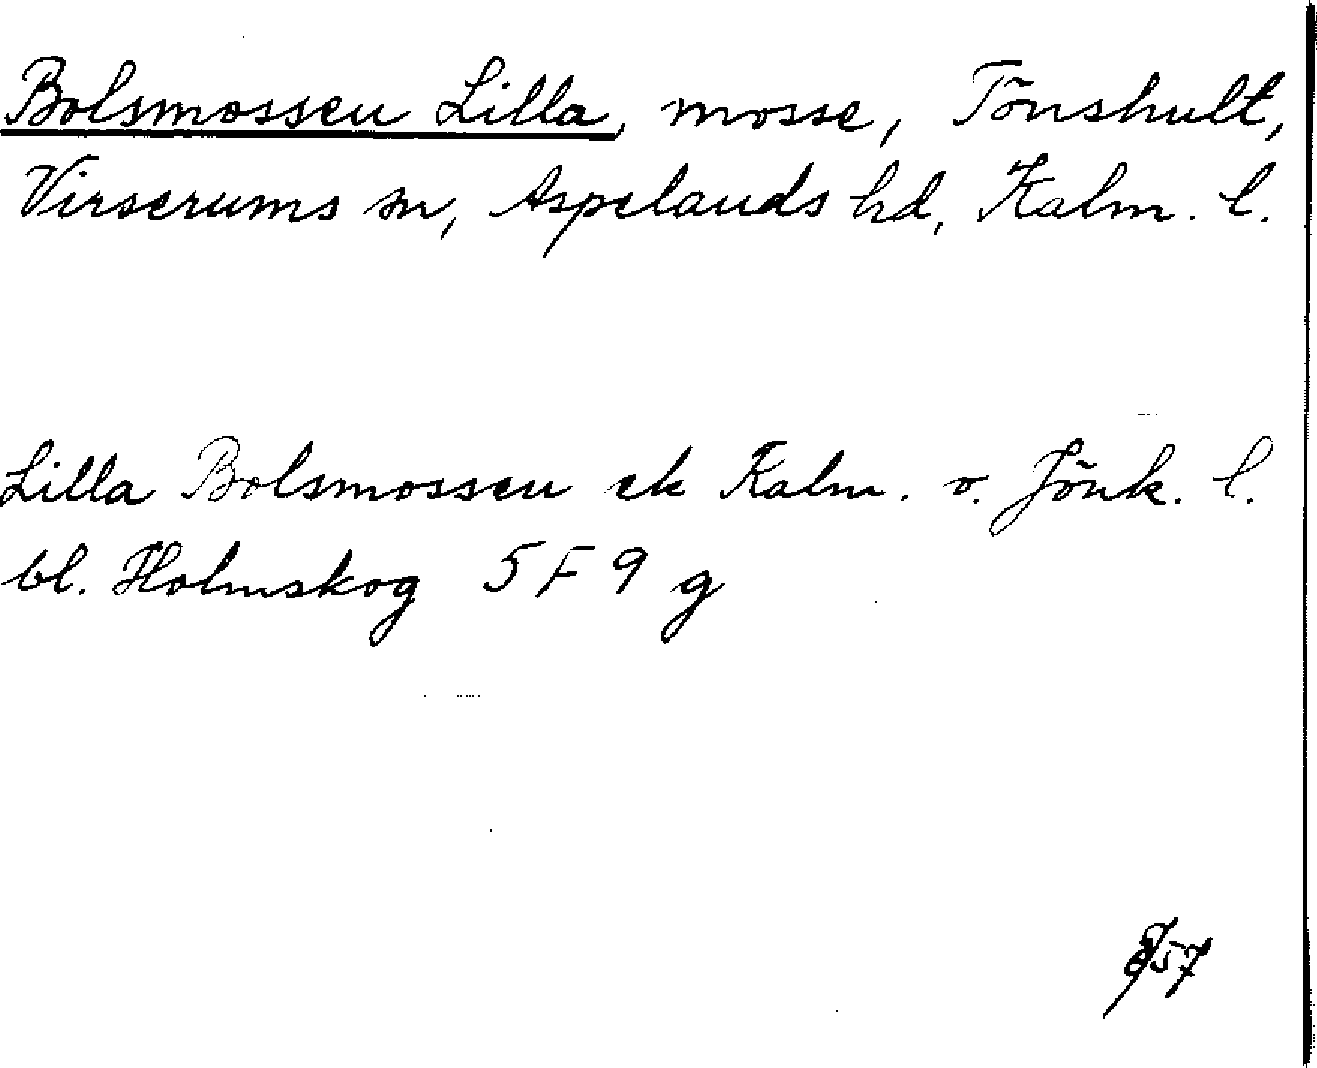 Bolsmossen Lilla, mosse, Tönshult,
Virserums sn, Aspelands hd, Kalm. l.
Lilla Bolsmossen ek Kalm. o. Jönk. l.
bl. Holmskog 5 F 9 g
8/57